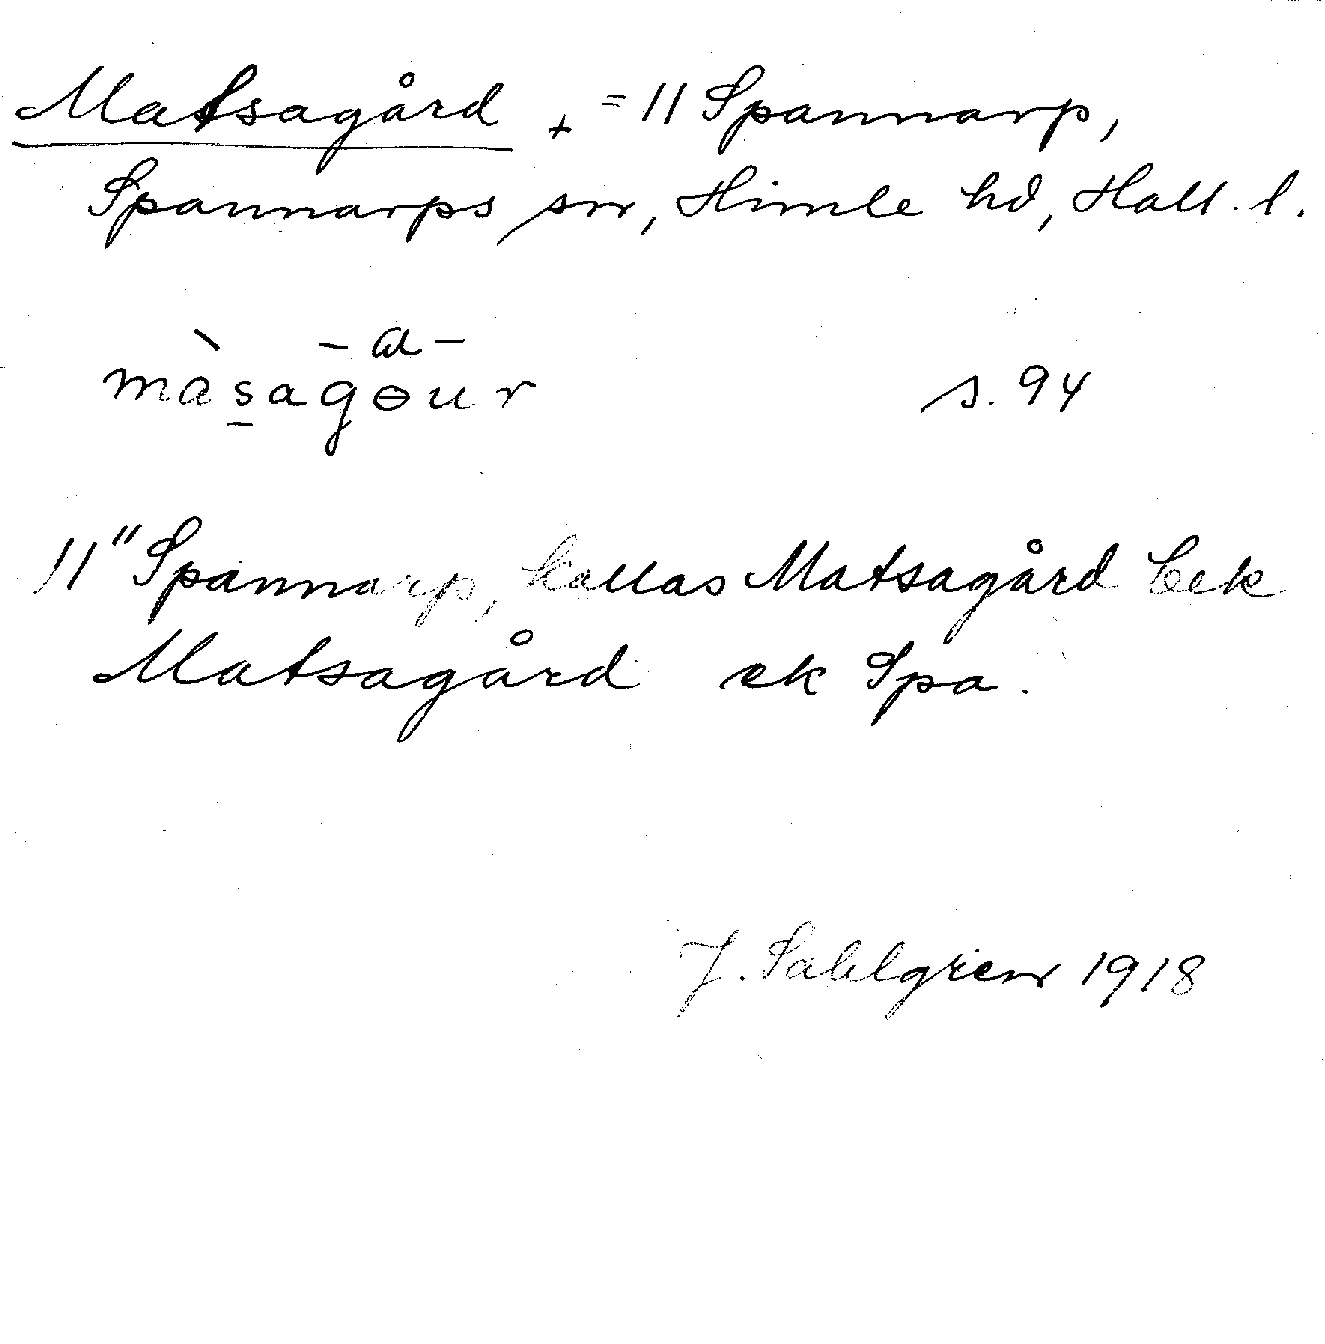 Matsagård + = 11 Spannarp,
Spannarps sn, Himle hd, Hall. l.
- a -
màsagɵur s. 94
11" Spannarp, kallas Matsagård bek
Matsagård ek Spa.
J. Sahlgren 1918